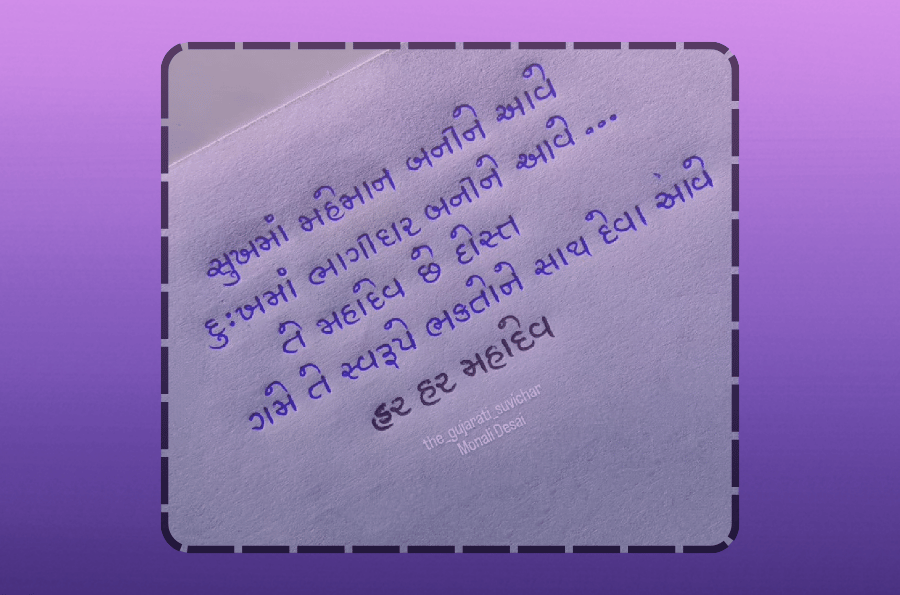 સુખમાં મહેમાન બનીને આવે
દુઃખમાં ભાગીદાર બનીને આવે ...
તે મહાદેવ છે દોસ્ત
ગમે તે સ્વરૂપે ભક્તોને સાથ દેવા આવે
હર હર મહાદેવ
the_gujarati_suvichar
Monali Desai